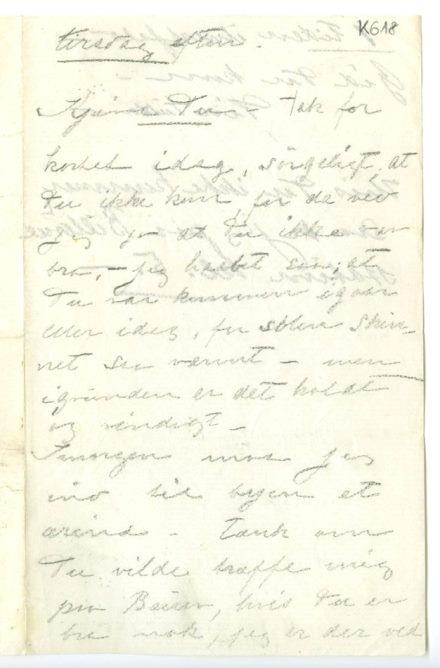 K618
tirsdag aften.
Kjære Du – Tak for
kortet idag, sörgeligt, at
Du ikke kom for da ved
jeg jo at Du ikke var
bra, – jeg haabet saa, at
Du var kommen igaar
eller idag, for solen skin-
net saa varmt – men
igrunden er det koldt
og vindigt –
Imorgen maa jeg
ind til byen et
ærind – tænk om
Du vilde træffe mig
paa Banen, hvis Du er
bra nok, jeg er der ved